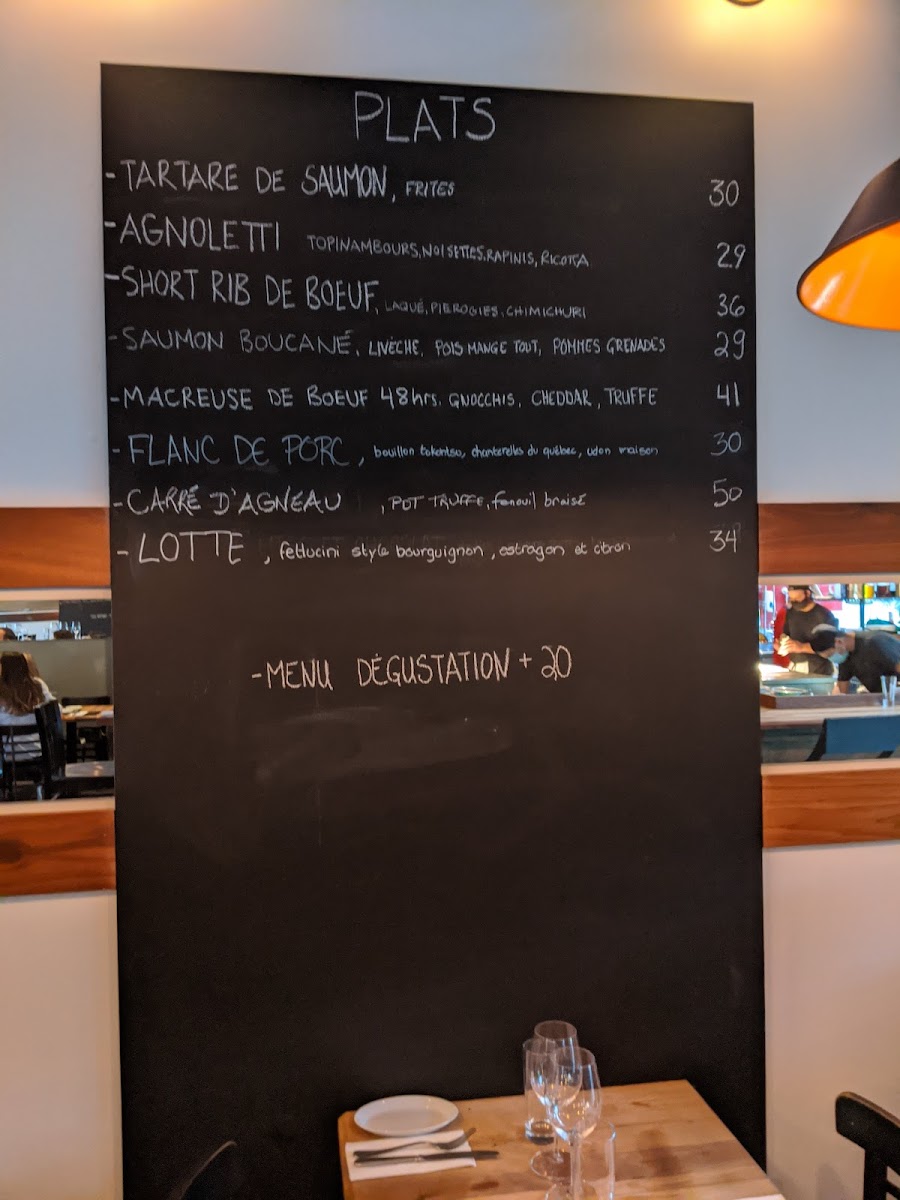 PLATS
-TARTARE DE SAUMON, FRITES 30
-AGNOLETTI TOPINAMBOURS, NOISETTES, RAPINIS, RICOTTA 29
-SHORT RIB DE BOEUF, LAQUÉ, PIEROGIES, CHIMICHURI 36
-SAUMON BOUCANÉ, LIVÈCHE, POIS MANGE TOUT, POMMES GRENADES 29
-MACREUSE DE BOEUF 48hrs, GNOCCHIS, CHEDDAR, TRUFFE 41
-FLANC DE PORC, bouillon tokontsu, chanterelles du québec, udon maison 30
-CARRÉ D'AGNEAU , POT TRUFFE, fenouil braisé 50
-LOTTE , fettucini style bourguignon, estragon et citron 34
-MENU DÉGUSTATION + 20